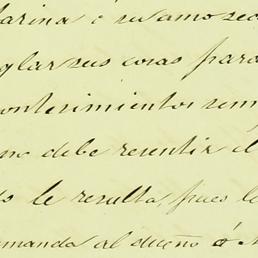 arina ó su amo sec
glar sus cosas para
contecimientos
no debe resentir el
le resulta, pues l
manda al dueño ó